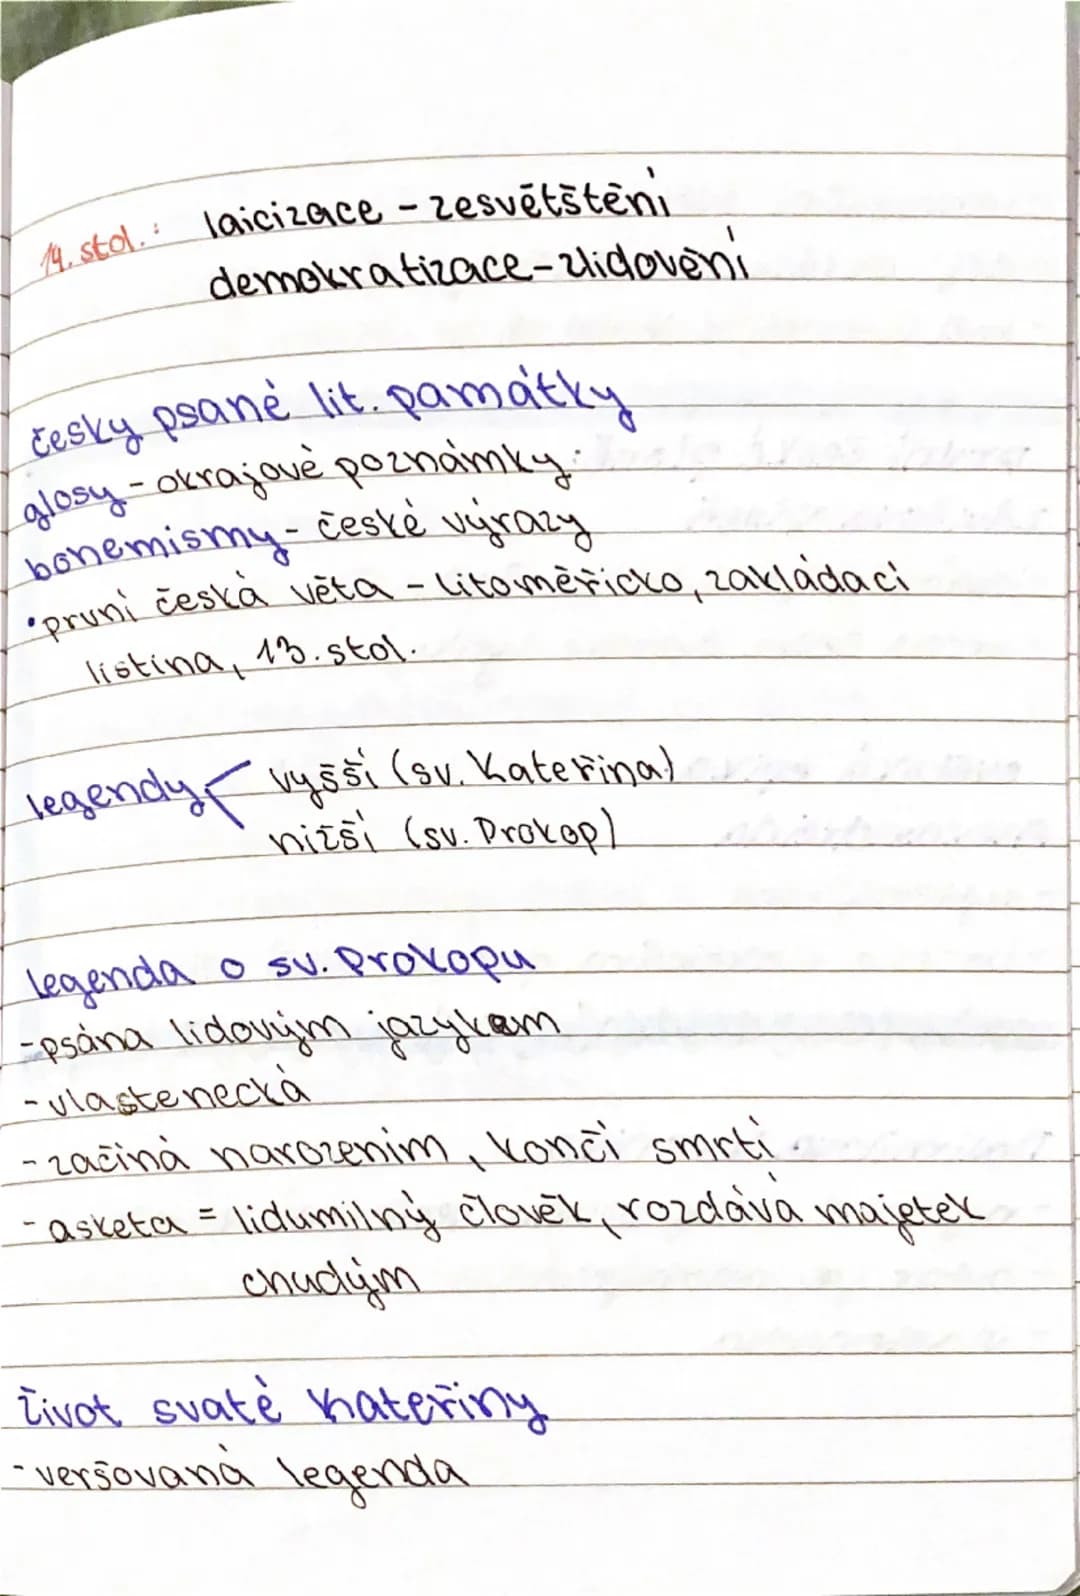 14. stol.: laicizace - zesvětštění
demokratizace - zlidovění
česky psané lit. památky
glosy - okrajové poznámky
bohemismy - české výrazy
• první česká věta - litoměřicko, zakládací
listina, 13. stol.
legendy < vyšší (sv. Kateřina)
nižší (sv. Prokop)
legenda o sv. Prokopu
- psána lidovým jazykem
- vlastenecká
- začíná narozením, končí smrtí
- asketa = lidumilný člověk, rozdává majetek
chudým
život svaté Kateřiny
- veršovaná legenda